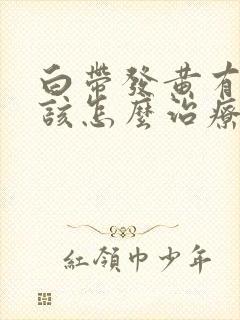 白帶發黃有
該怎麼治療
紅領巾少年